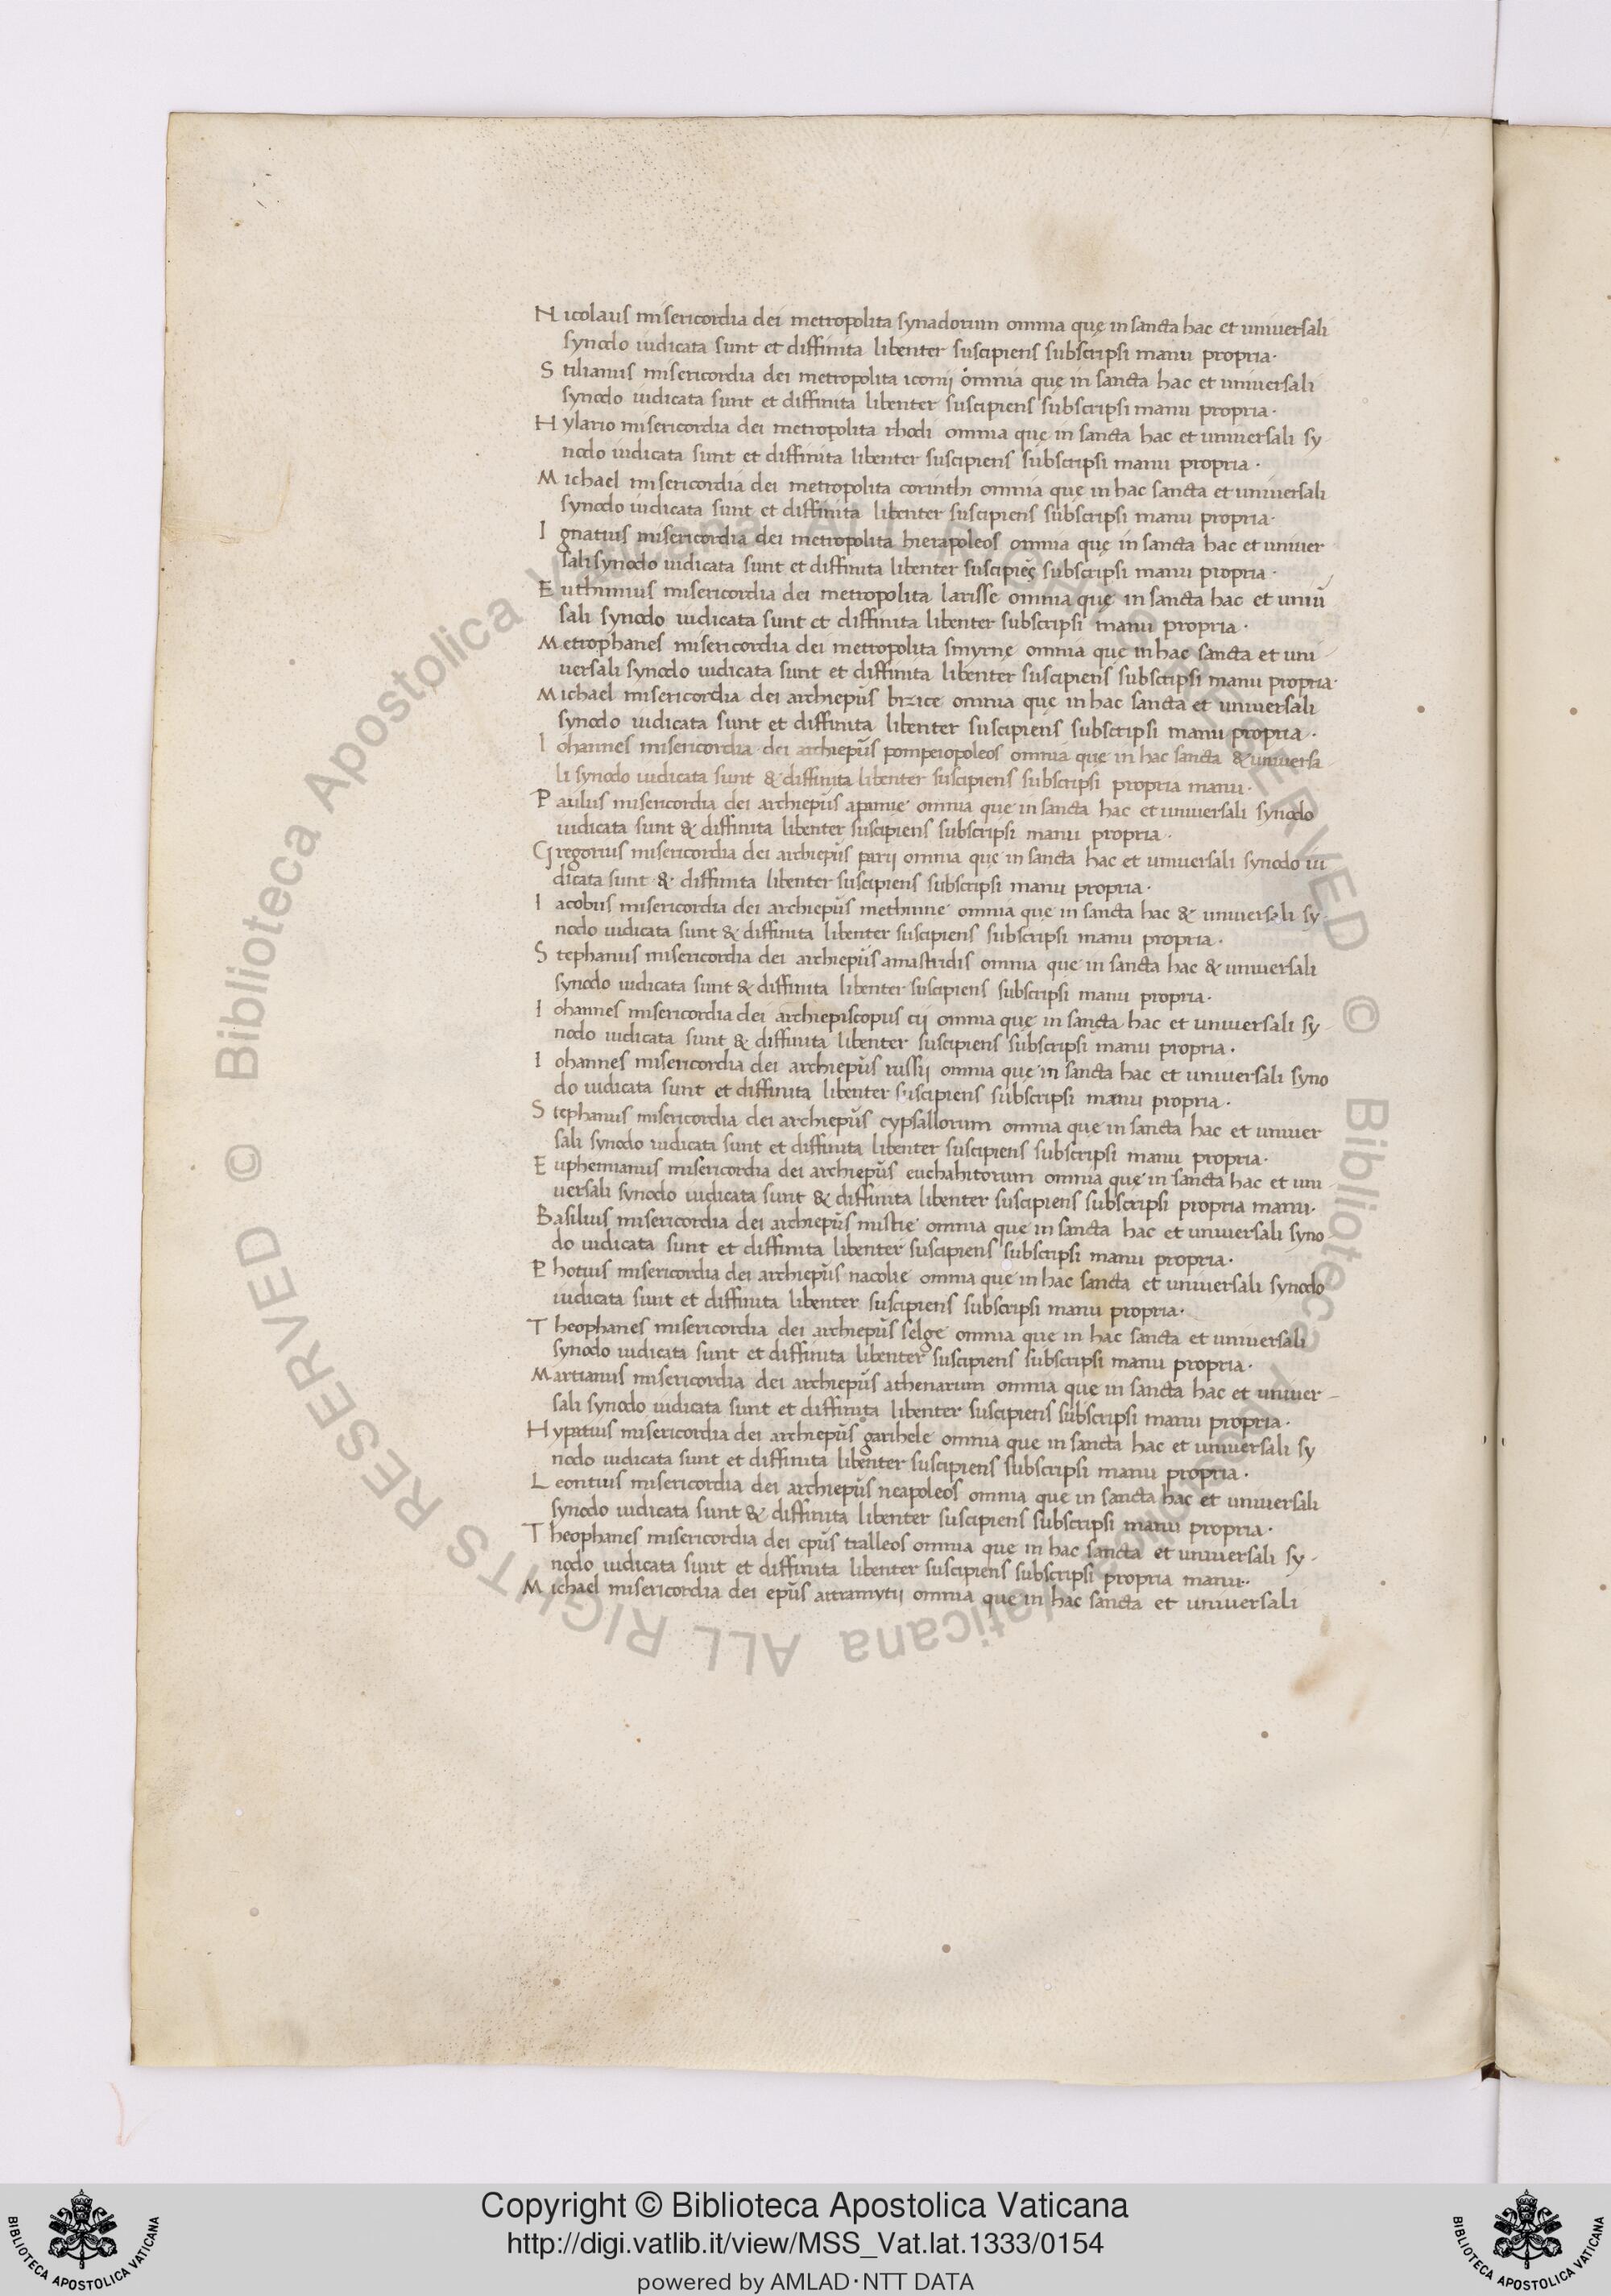 Nicolaus misericordia dei metropolita synadorum omnia quę in sancta hac et uniuersali
synodo iudicata sunt et diffinita libenter suscipiens subscripsi manu propria·
Stilianus misericordia dei metropolita iconij omnia que in sancta hac et uniuersali
synodo iudicata sunt et diffinita libenter suscipiens subscripsi manu propria·
Hylario misericordia dei metropolita rhodi omnia quę in sancta hac et uniuersali sy
nodo iudicata sunt et diffinita libenter suscipiens subscripsi manu propria·
Michael misericordia dei metropolita corinthi omnia quę in hac sancta et uniuersali
synodo iudicata sunt et diffinita libenter suscipiens subscripsi manu propria·
Ignatius misericordia dei metropolita hierapoleos omnia quę in sancta hac et uniuer
sali synodo iudicata sunt et diffinita libenter subscripsi manu propria·
Euthimius misericordia dei metropolita larisse omnia quę in sancta hac et uniu̅
sali synodo iudicata sunt et diffinita libenter subscripsi manu propria·
Metrophanes misericordia dei metropolita smyrnę omnia quę in hac sancta et uni-
uersali synodo iudicata sunt et diffinita libenter suscipiens subscripsi manu propria·
Michael misericordia dei archiep̅us bizice omnia quę in hac sancta et uniuersali
synodo iudicata sunt et diffinita libenter suscipiens subscripsi manu propria·
Iohannes misericordia dei archiep̅us pompeiopoleos omnia quę in hac sancta & uniuersa
li synodo iudicata sunt & diffinita libenter suscipiens subscripsi propria manu·
Paulus misericordia dei archiep̅us apamie omnia que in sancta hac et uniuersali synodo
iudicata sunt & diffinita libenter suscipiens subscripsi manu propria·
Gregorius misericordia dei archiep̅us parij omnia quę in sancta hac et uniuersali synodo iu
dicata sunt & diffinita libenter suscipiens subscripsi manu propria·
Iacobus misericordia dei archiep̅us methinne omnia quę in sancta hac & uniuersali sy
nodo iudicata sunt & diffinita libenter suscipiens subscripsi manu propria·
Stephanus misericordia dei archiep̅us amastridis omnia que in sancta hac & uniuersali
synodo iudicata sunt & diffinita libenter suscipiens subscripsi manu propria·
Iohannes misericordia dei archiepiscopus cij omnia quę in sancta hac et uniuersali sy
nodo iudicata sunt & diffinita libenter suscipiens subscripsi manu propria·
Iohannes misericordia dei archiep̅us russij omnia que in sancta hac et uniuersali syno
do iudicata sunt et diffinita libenter suscipiens subscripsi manu propria·
Stephanus misericordia dei archiep̅us cypsallorum omnia que in sancta hac et uniuer
sali synodo iudicata sunt et diffinita libenter suscipiens subscripsi manu propria·
Euphemianus misericordia dei archiep̅us euchahitorum omnia que in sancta hac et uni-
uersali synodo iudicata sunt & diffinita libenter suscipiens subscripsi propria manu·
Basilius misericordia dei archiep̅us mistie omnia que in sancta hac et uniuersali syno-
do iudicata sunt et diffinita libenter suscipiens subscripsi manu propria·
Photius misericordia dei archiep̅us nacolie omnia que in hac sancta et uniuersali synodo
iudicata sunt et diffinita libenter suscipiens subscripsi manu propria·
Theophanes misericordia dei archiep̅us selge omnia que in hac sancta et uniuersali
synodo iudicata sunt et diffinita libenter suscipiens subscripsi manu propria·
Martianus misericordia dei archiep̅us athenarum omnia que in sancta hac et uniuer-
sali synodo iudicata sunt et diffinita libenter suscipiens subscripsi manu propria·
Hypatius misericordia dei archiep̅us garihele omnia que in sancta hac et uniuersali sy
nodo iudicata sunt et diffinita libenter suscipiens subscripsi manu propria·
Leontius misericordia dei archiep̅us neapoleos omnia que in sancta hac et uniuersali
synodo iudicata sunt & diffinita libenter suscipiens subscripsi manu propria·
Theophanes misericordia dei ep̅us tralleos omnia que in hac sancta et uniuersali sy-
nodo iudicata sunt et diffinita libenter suscipiens subscripsi propria manu·
Michael misericordia dei ep̅us atramytij omnia que in hac sancta et uniuersali
© Biblioteca Apostolica Vaticana ALL RIGHTS RESERVED © Biblioteca Apostolica Vaticana ALL RIGHTS RESERVED
Copyright © Biblioteca Apostolica Vaticana
http://digi.vatlib.it/view/MSS_Vat.lat.1333/0154
powered by AMLAD·NTT DATA
BIBLIOTECA APOSTOLICA VATICANA
BIBLIOTECA APOSTOLICA VATICANA